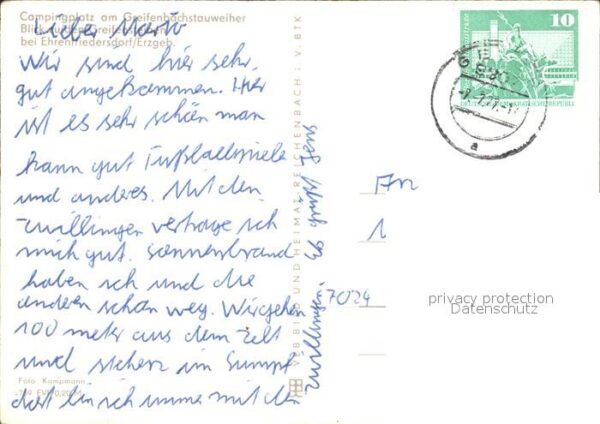 Campingplatz am Greifenbachstauweiher
Blick zu den Greifensteinen
bei Ehrenfriedersdorf/Erzgeb.
Lieber Mario
Wir sind hier sehr
gut angekammen. Hier
ist es sehr schön man
kann gut Fußballspiele
und anderes. Mit den
zwillingen vertrage ich
mich gut. sonnenbrand
haben ich und die
anderen schon weg. Wir gehen
100 meter aus dem Zelt
und stehen im Sumpf
dort bin ich immer mit den
zwillingen. Es grüßt Jens
Foto: Kampmann
VEB BILD UND HEIMAT REICHENBACH i. V. BTK
An
1
7024
10
DEUTSCHE DEMOKRATISCHE REPUBLIK
a
privacy protection
Datenschutz